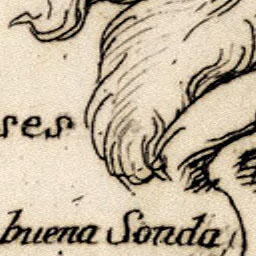 ses
buena Sonda